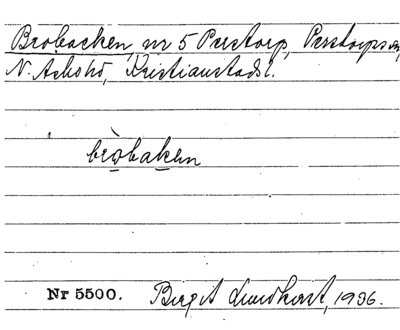 Brobacken, nr 5 Perstorp, Perstorps sn,
N. Åsbo hd, Kristianstads l.
brò̤baken
Nr 5500. Birgit Lundkvist, 1936.